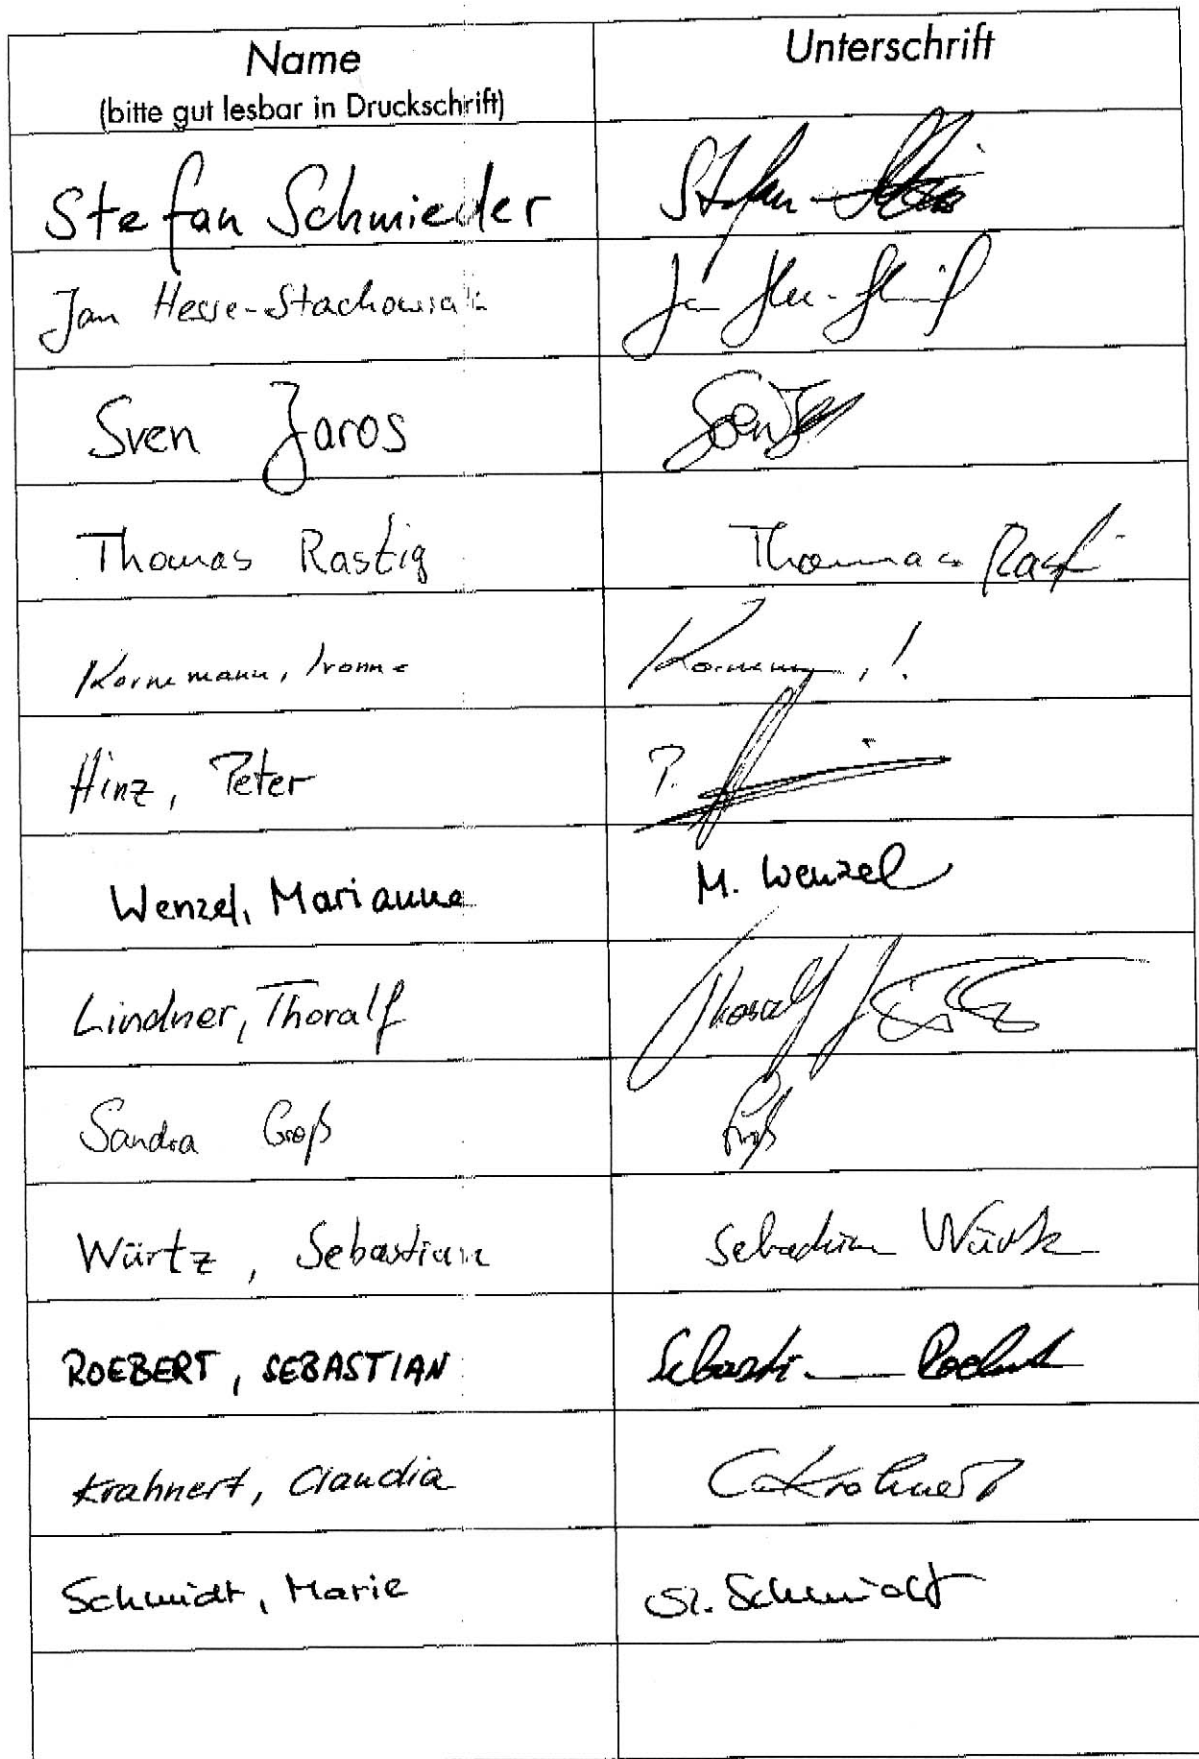 Name Unterschrift
(bitte gut lesbar in Druckschrift)
Stefan Schmieder Stefan
Jan Hesse-Stachowiak Jan
Sven Jaros Sven
Thomas Rastig Thomas Rasti
Kornemann, Ivonne
Hinz, Peter P.
Wenzel, Marianne M. Wenzel
Lindner, Thoralf Thoralf
Sandra Groß Groß
Würtz, Sebastian Sebastian Würtz
ROEBERT, SEBASTIAN Sebastian Roebert
Krahnert, Claudia C. Krahnert
Schmidt, Marie M. Schmidt